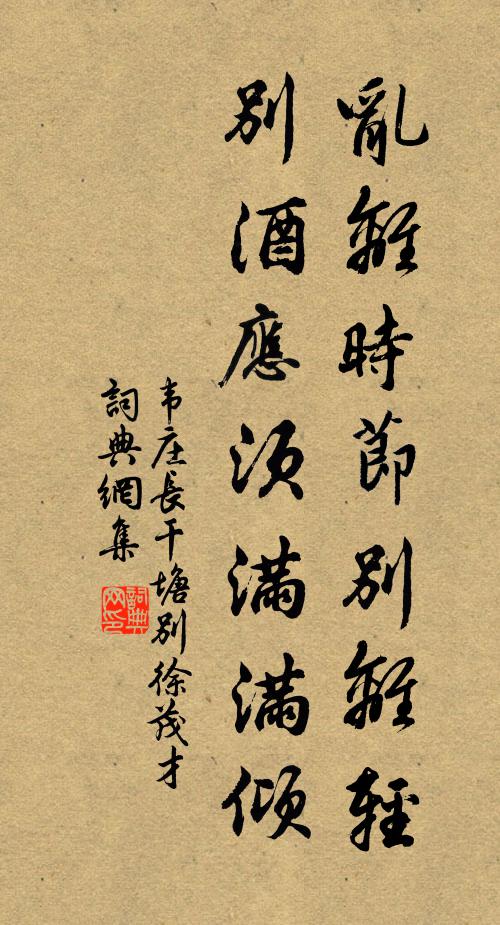 亂離時節別離輕
別酒應須滿滿傾
韦庄長干塘別徐茂才
詞典網集
詞典
网印